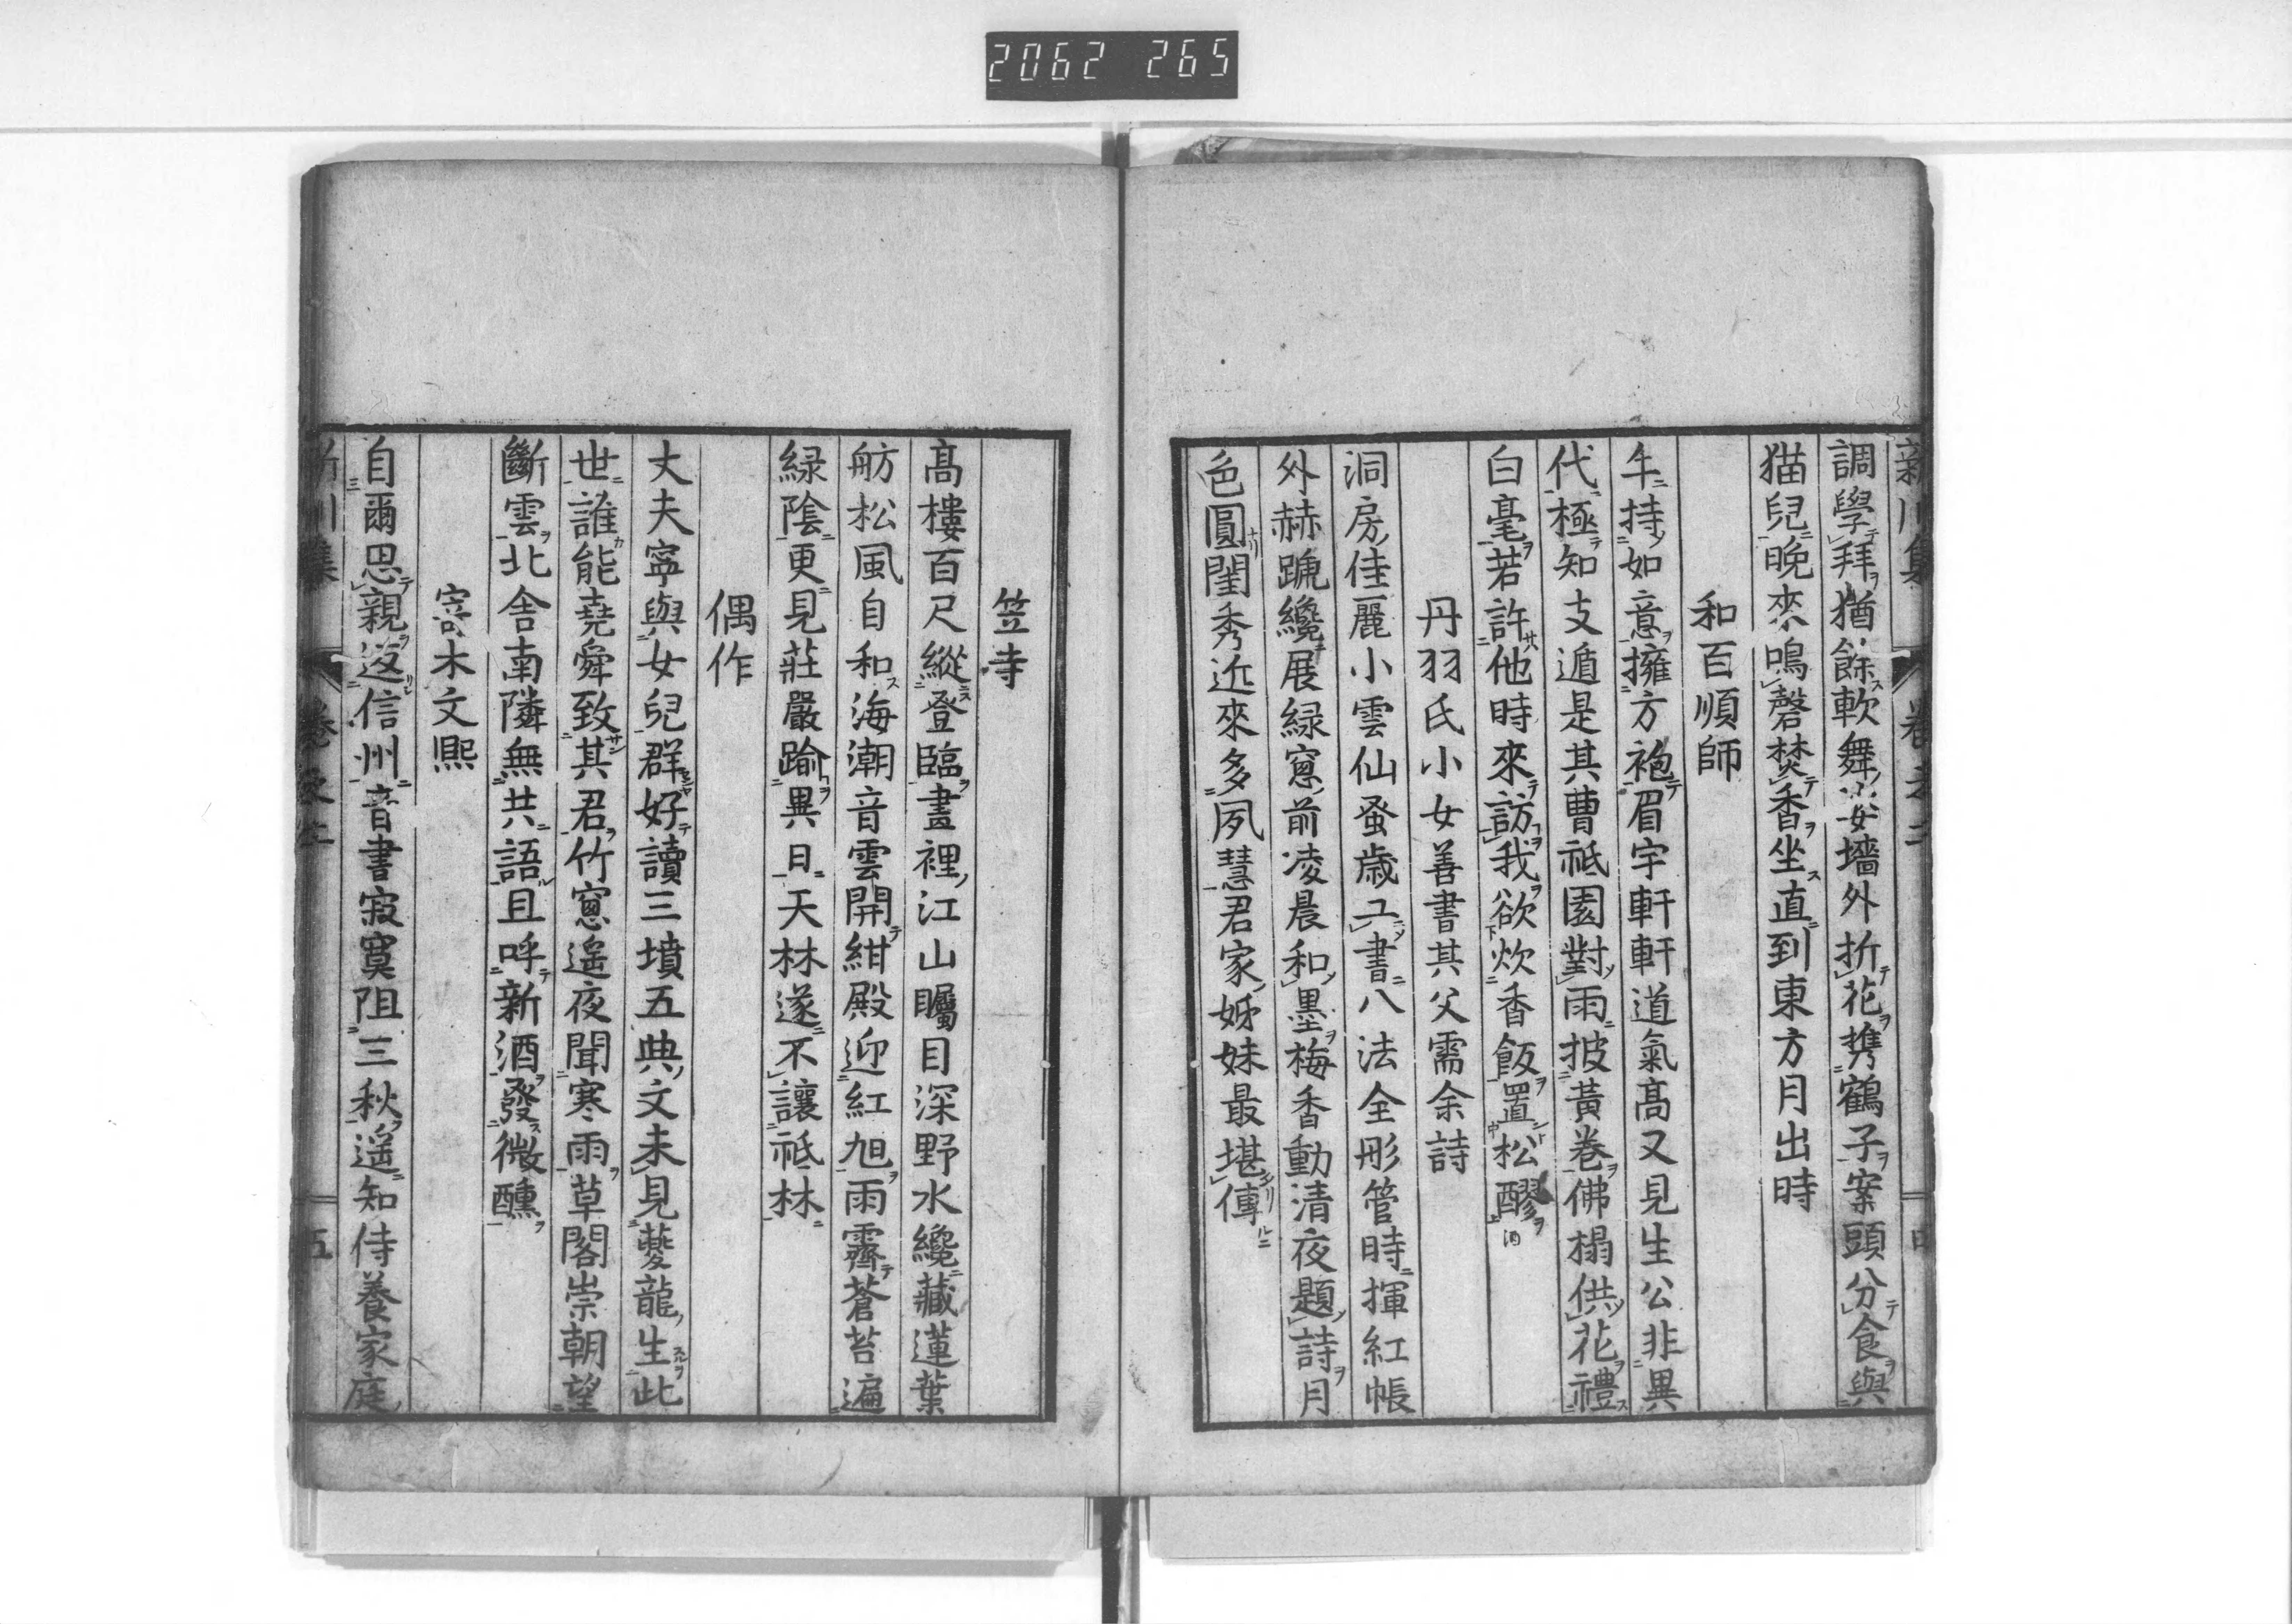 2062 265
調學拜猶餘軟舞𡛸墻外折花携鶴子案頭分食與
猫兒晚來鳴磬焚香坐直到東方月出時
和百順師
手持如意擁方袍眉宇軒軒道氣高又見生公非異
代極知支遁是其曹祇園對雨披黃卷佛榻供花禮
白毫若許他時來訪我欲炊香飯置松醪
丹羽氏小女善書其父需余詩
洞房佳麗小雲仙蚤歲工書八法全彤管時揮紅帳
外赫蹏纔展綠窻前凌晨和墨梅香動清夜題詩月
色圓閨秀近來多夙慧君家姊妹最堪傳
笠寺
高樓百尺縱登臨畫裡江山矚目深野水纔藏蓮葉
舫松風自和海潮音雲開紺殿迎紅旭雨霽蒼苔遍
綠陰更見莊嚴踰異日天林遂不讓祇林
偶作
丈夫寧與女兒群好讀三墳五典文未見夔龍生此
世誰能堯舜致其君竹窻遙夜聞寒雨草閣崇朝望
斷雲北舍南隣無共語且呼新酒發微醺
寄木文熙
自爾思親返信州音書寂寞阻三秋遥知侍養家庭
集
五